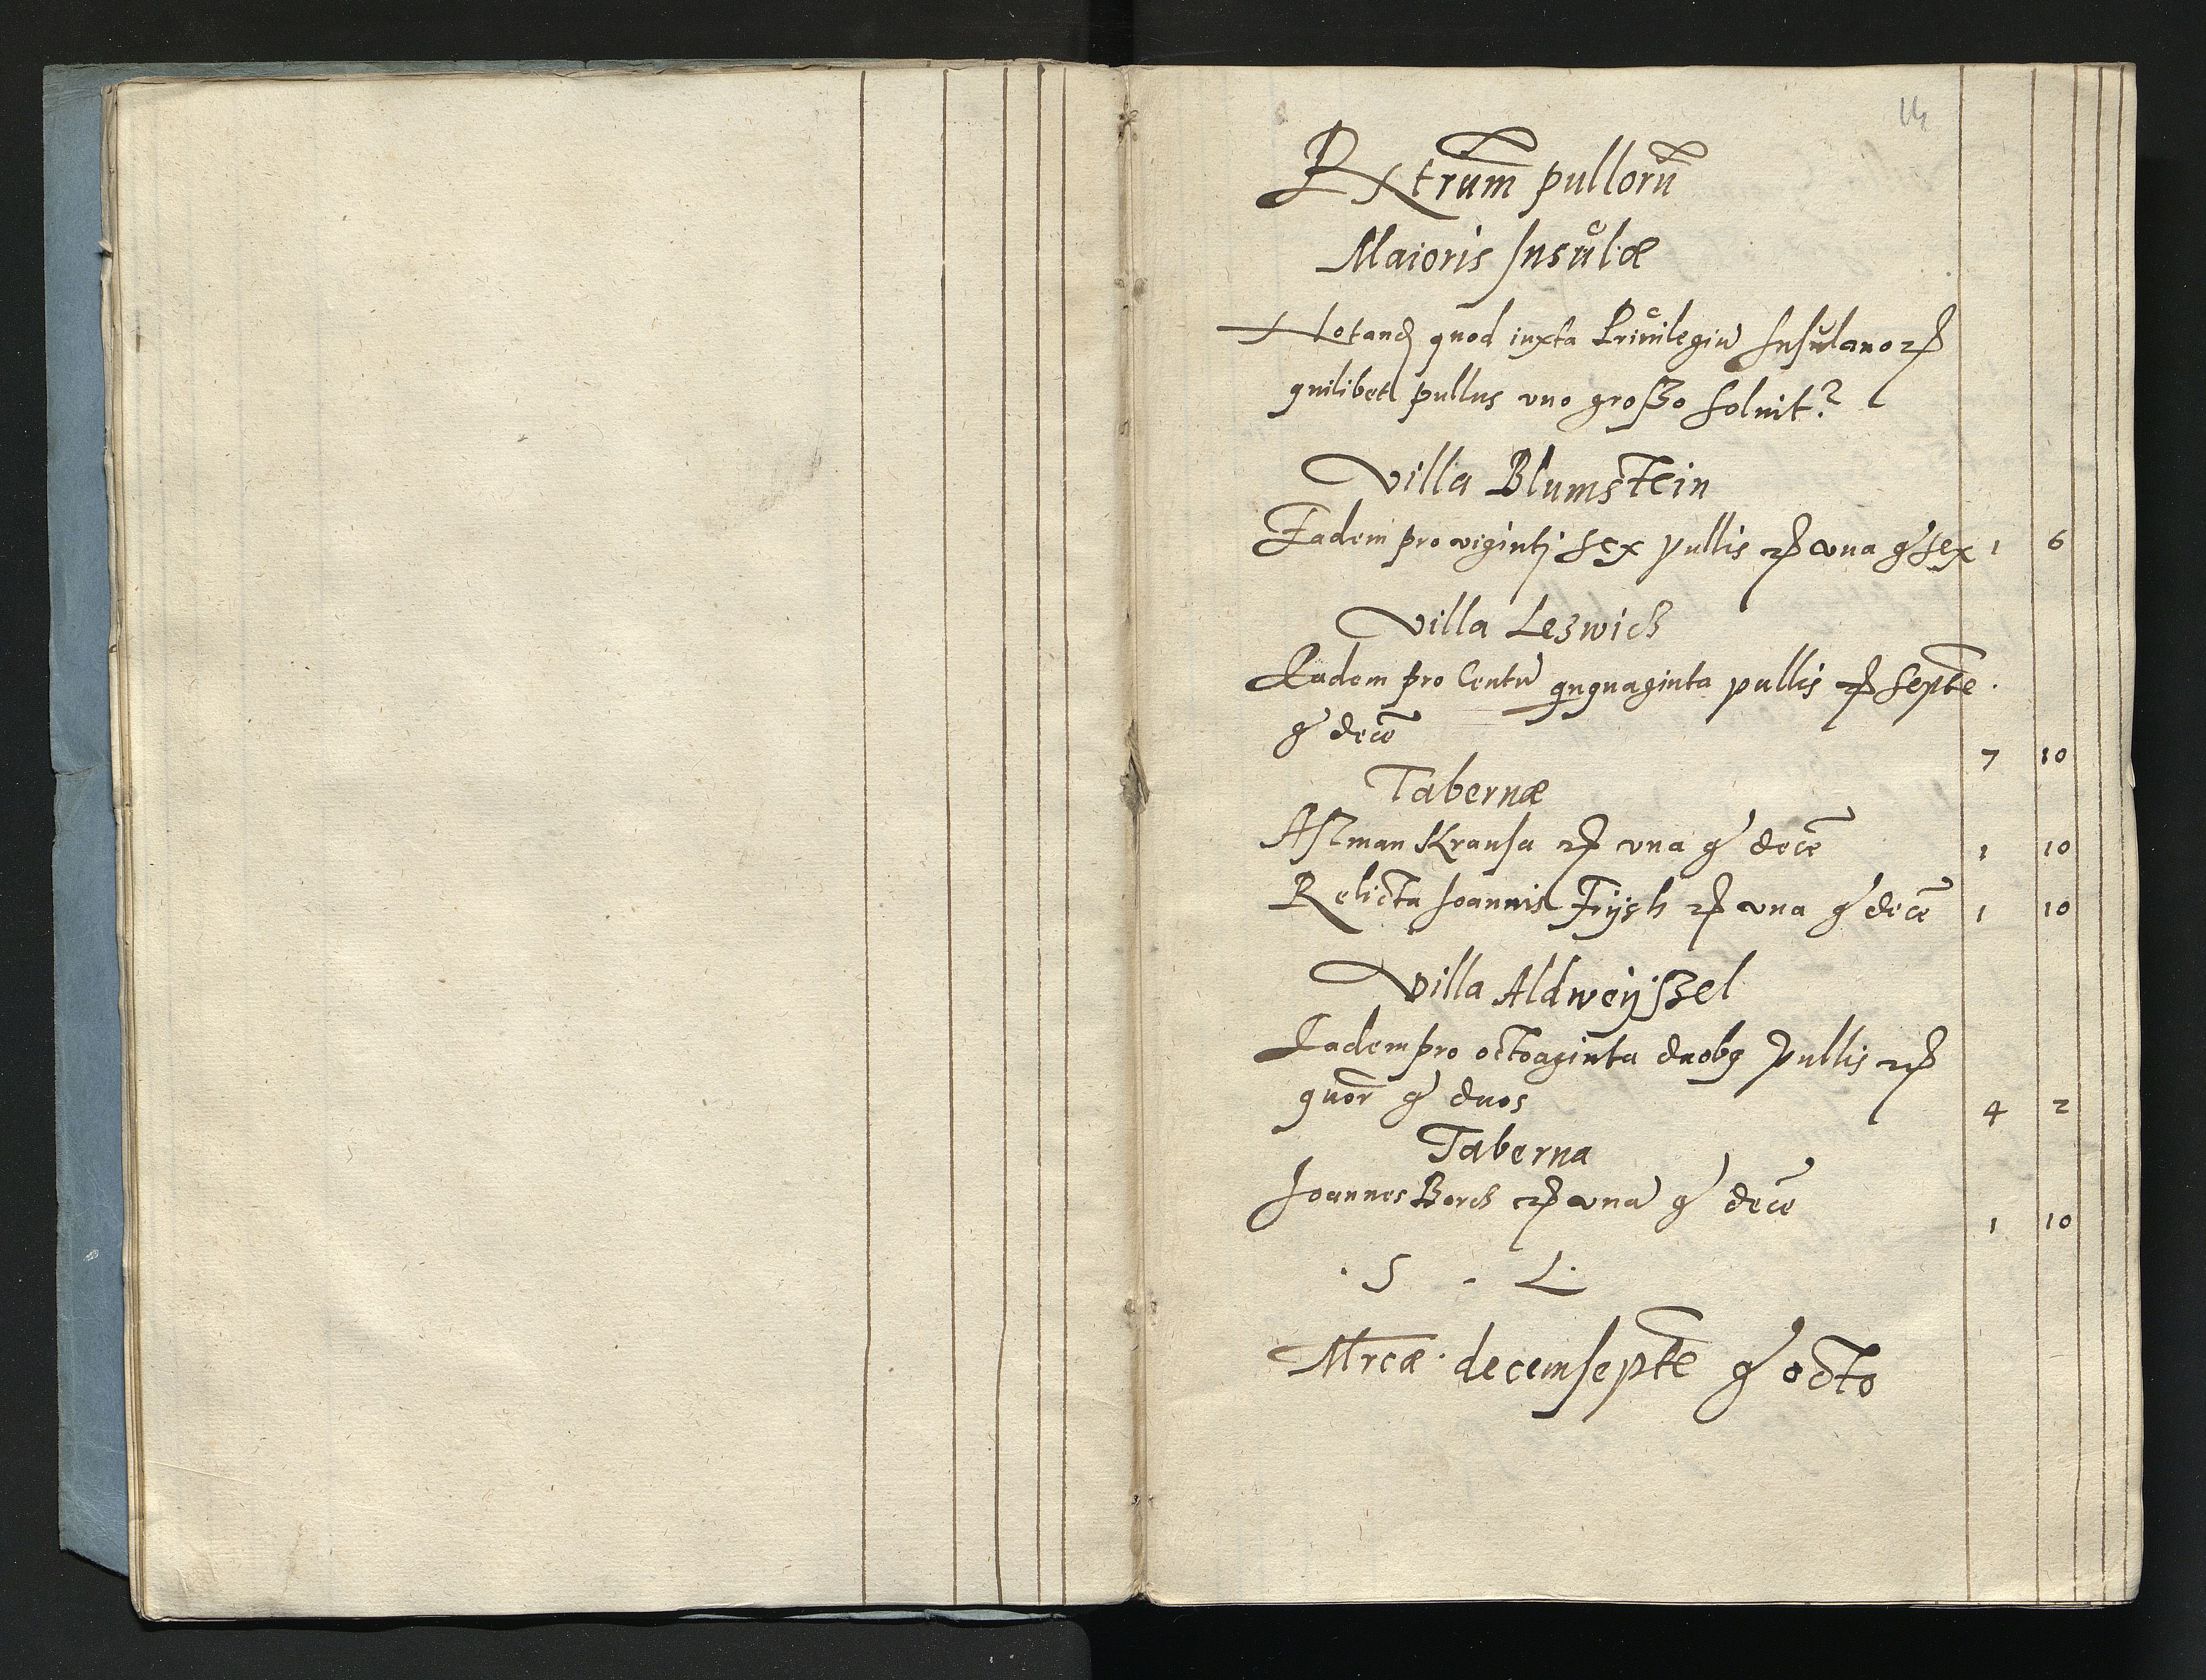 14
Rxtrum̄ pullorū
Maioris Insulæ
Notand quod iuxta Priuilegiū Insulanoꝝ
quilibet pullus vno großo soluit
Villa Blumstein
Eadem pro viginti sex pullis ꝝ vna gͦ sex 1 6
Villa Leswicz
Eadem pro Centū quaginta pullis ꝝ septē
gͦ decē 7 10
Tabernæ
Asman Krausa ꝝ vna gͦ decē 1 10
Relicta Joannis Frysh ꝝ vna gͦ decē 1 10
Villa Aldweÿszel
Eadem pro octoaginta duobꝯ pullis ꝝ
quor gͦ duos 4 2
Taberna
Joannes Borcz ꝝ vna gͦ decē 1 10
· S - L ·
Mrcæ · decemseptē gͦ octo